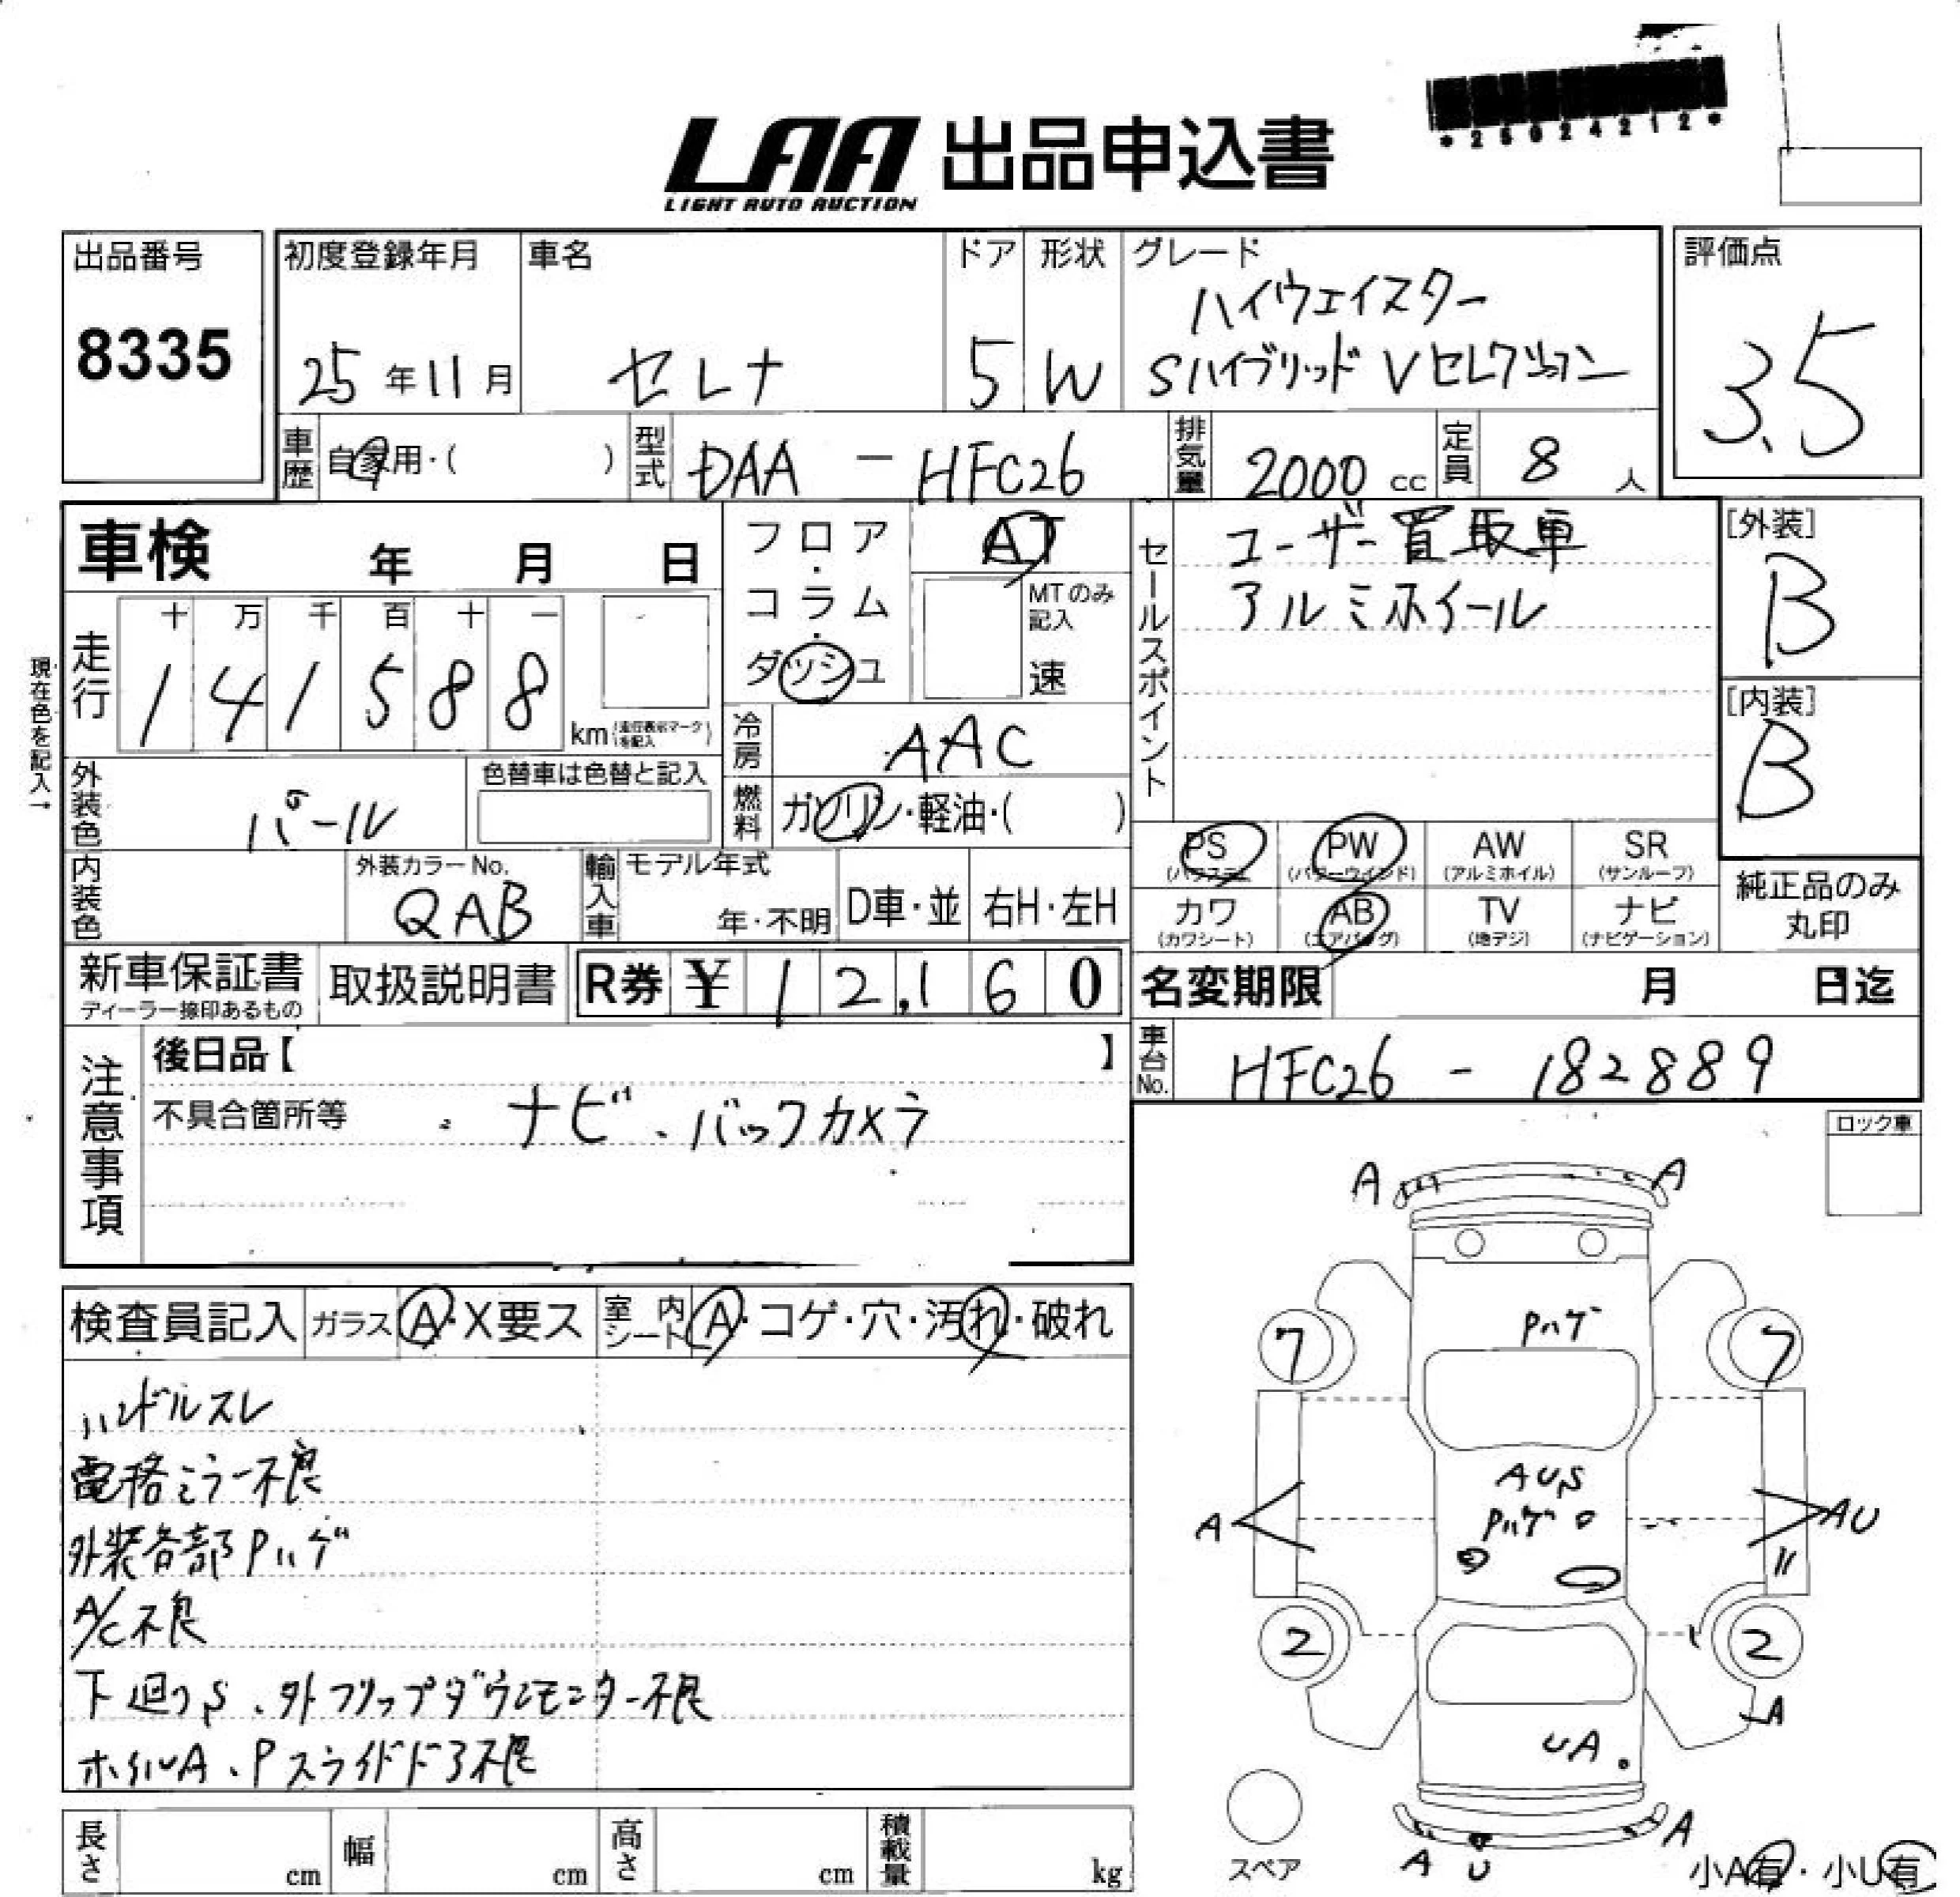 *25024212*
LAA 出品申込書
LIGHT AUTO AUCTION
出品番号
8335
初度登録年月
25年11月
車名
セレナ
ドア
5
形状
W
グレード
ハイウェイスター
Sハイブリッド Vセレクション
評価点
3.5
車歴
自家用・( )
型式
DAA - HFC26
排気量
2000 cc
定員
8 人
車検 年 月 日
フロア・コラム・ダッシュ
AT
MTのみ記入
速
セールスポイント
ユーザー買取車
アルミホイール
[外装]
B
[内装]
B
現在色を記入→
走行
十 万 千 百 十 一
1 4 1 5 8 8
km(走行表示マークを記入)
冷房
AAC
外装色
パール
色替車は色替と記入
燃料
ガソリン・軽油・( )
PS
(パワステ)
PW
(パワーウインド)
AW
(アルミホイル)
SR
(サンルーフ)
カワ
(カワシート)
AB
(エアバッグ)
TV
(地デジ)
ナビ
(ナビゲーション)
純正品のみ
丸印
内装色
外装カラーNo.
QAB
輸入車
モデル年式
年・不明
D車・並
右H・左H
新車保証書
ディーラー捺印あるもの
取扱説明書
R券 ¥ 12,160
名変期限 月 日迄
車台No.
HFC26 - 182889
注意事項
後日品【 】
不具合箇所等
・ナビ、バックカメラ
ロック車
検査員記入
ガラス A・X要ス
室内シート A・コゲ・穴・汚れ・破れ
ハンドルスレ
電格ミラー不良
外装各部Pハゲ
A/C不良
下廻りS、外フリップダウンモニター不良
ホイルA、Pスライドドア不良
A A
Pハゲ
7 7
AUS
Pハゲ
A AU
2 2
A
UA
A U A
スペア
小A有・小U有
長さ cm
幅 cm
高さ cm
積載量 kg